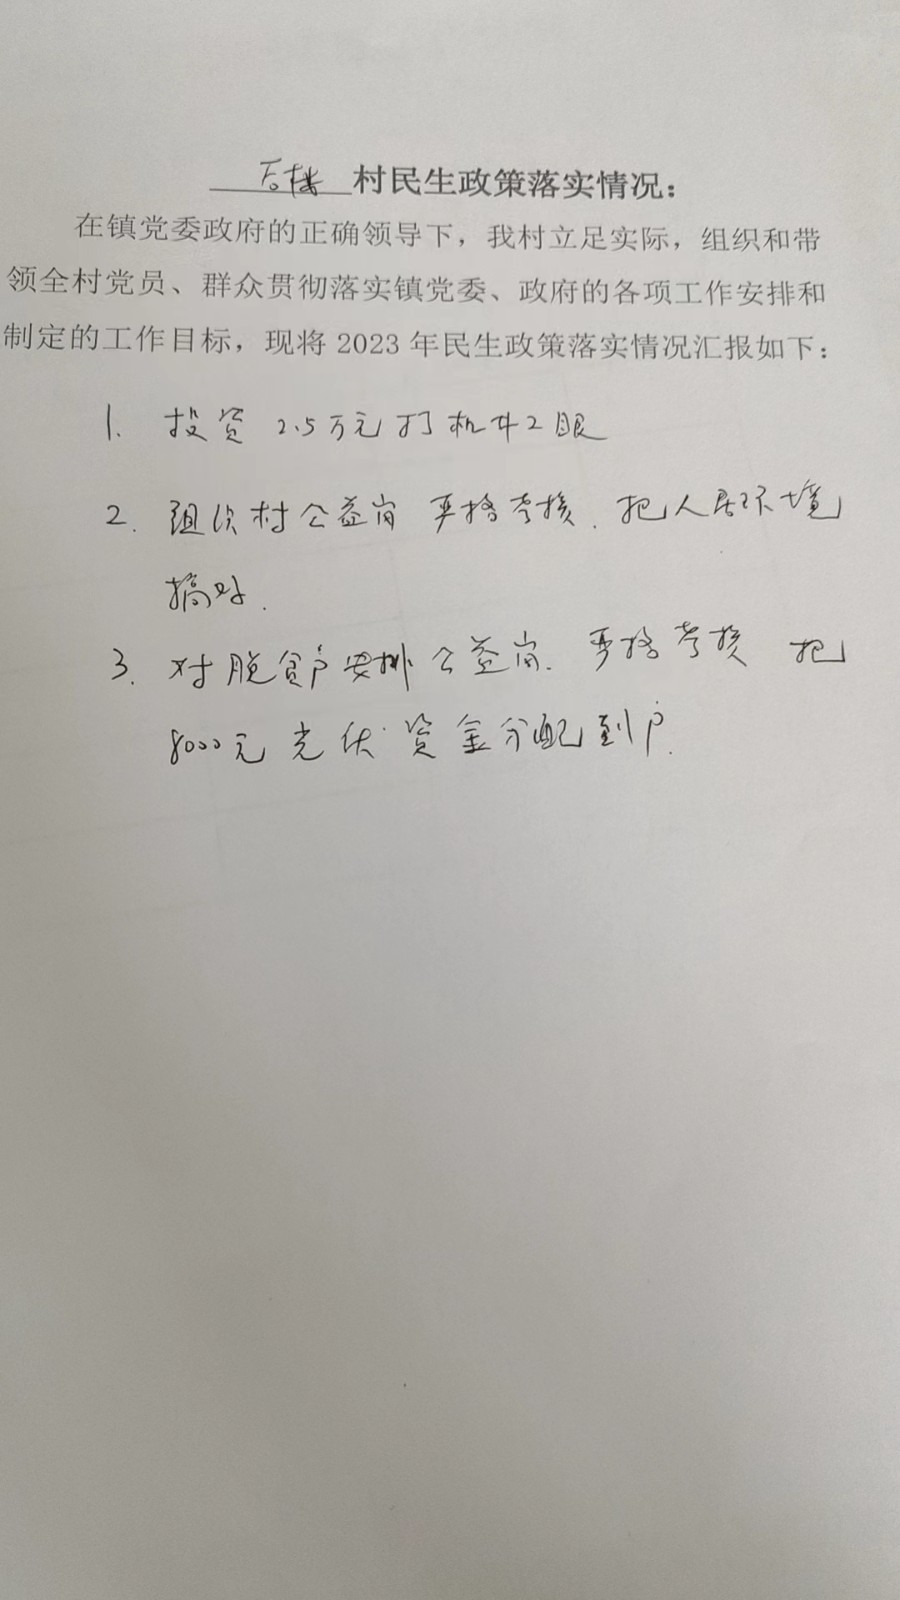 后楼村民生政策落实情况：
在镇党委政府的正确领导下，我村立足实际，组织和带
领全村党员、群众贯彻落实镇党委、政府的各项工作安排和
制定的工作目标，现将 2023 年民生政策落实情况汇报如下：
1. 投资 2.5万元打机井2眼
2. 组织村公益岗 严格考核. 把人居环境
搞好.
3. 对脱贫户安排公益岗. 严格考核 把
8000元光伏资金分配到户.